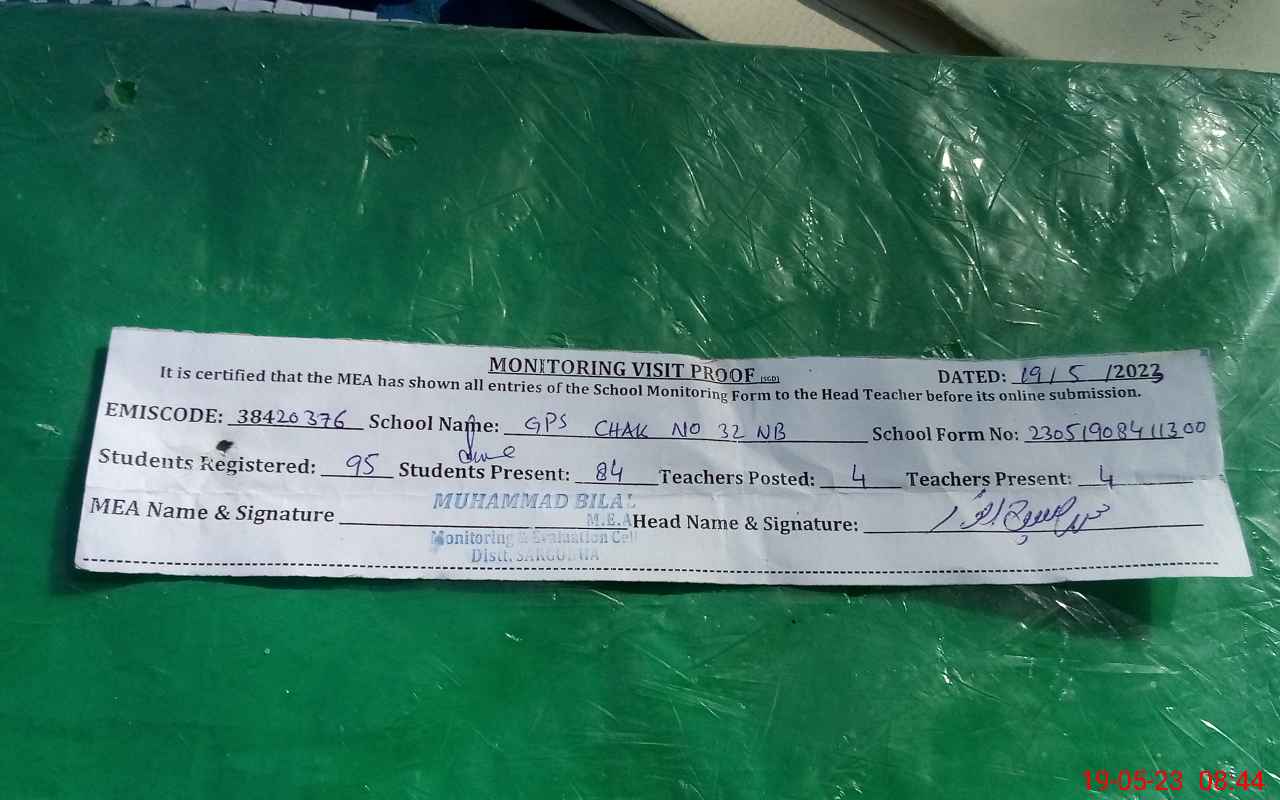 MONITORING VISIT PROOF (SGD)
DATED: 19/5/2023
It is certified that the MEA has shown all entries of the School Monitoring Form to the Head Teacher before its online submission.
EMISCODE: 38420376 School Name: GPS CHAK NO 32 NB School Form No: 23051908411300
Students Registered: 95 Students Present: 84 Teachers Posted: 4 Teachers Present: 4
MEA Name & Signature Head Name & Signature:
MUHAMMAD BILAL
M.E.A
Monitoring & Evaluation Cell
Distt. SARGODHA
19-05-23 08:44